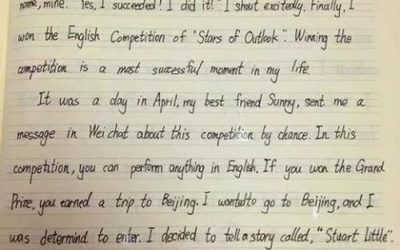 name, mine. "Yes, I succeeded! I did it!" I shout excitedly. Finally, I
won the English Competition of "Stars of Outlook". Winning the
competition is a most successful moment in my life.
It was a day in April, my best friend Sunny, sent me a
message in Wei chat about this competition by chance. In this
competition, you can perform anything in English. If you won the Grand
Prize, you earned a trip to Beijing. I wanted to go to Beijing, and I
was determind to enter. I decided to tell a story called, "Stuart Little".